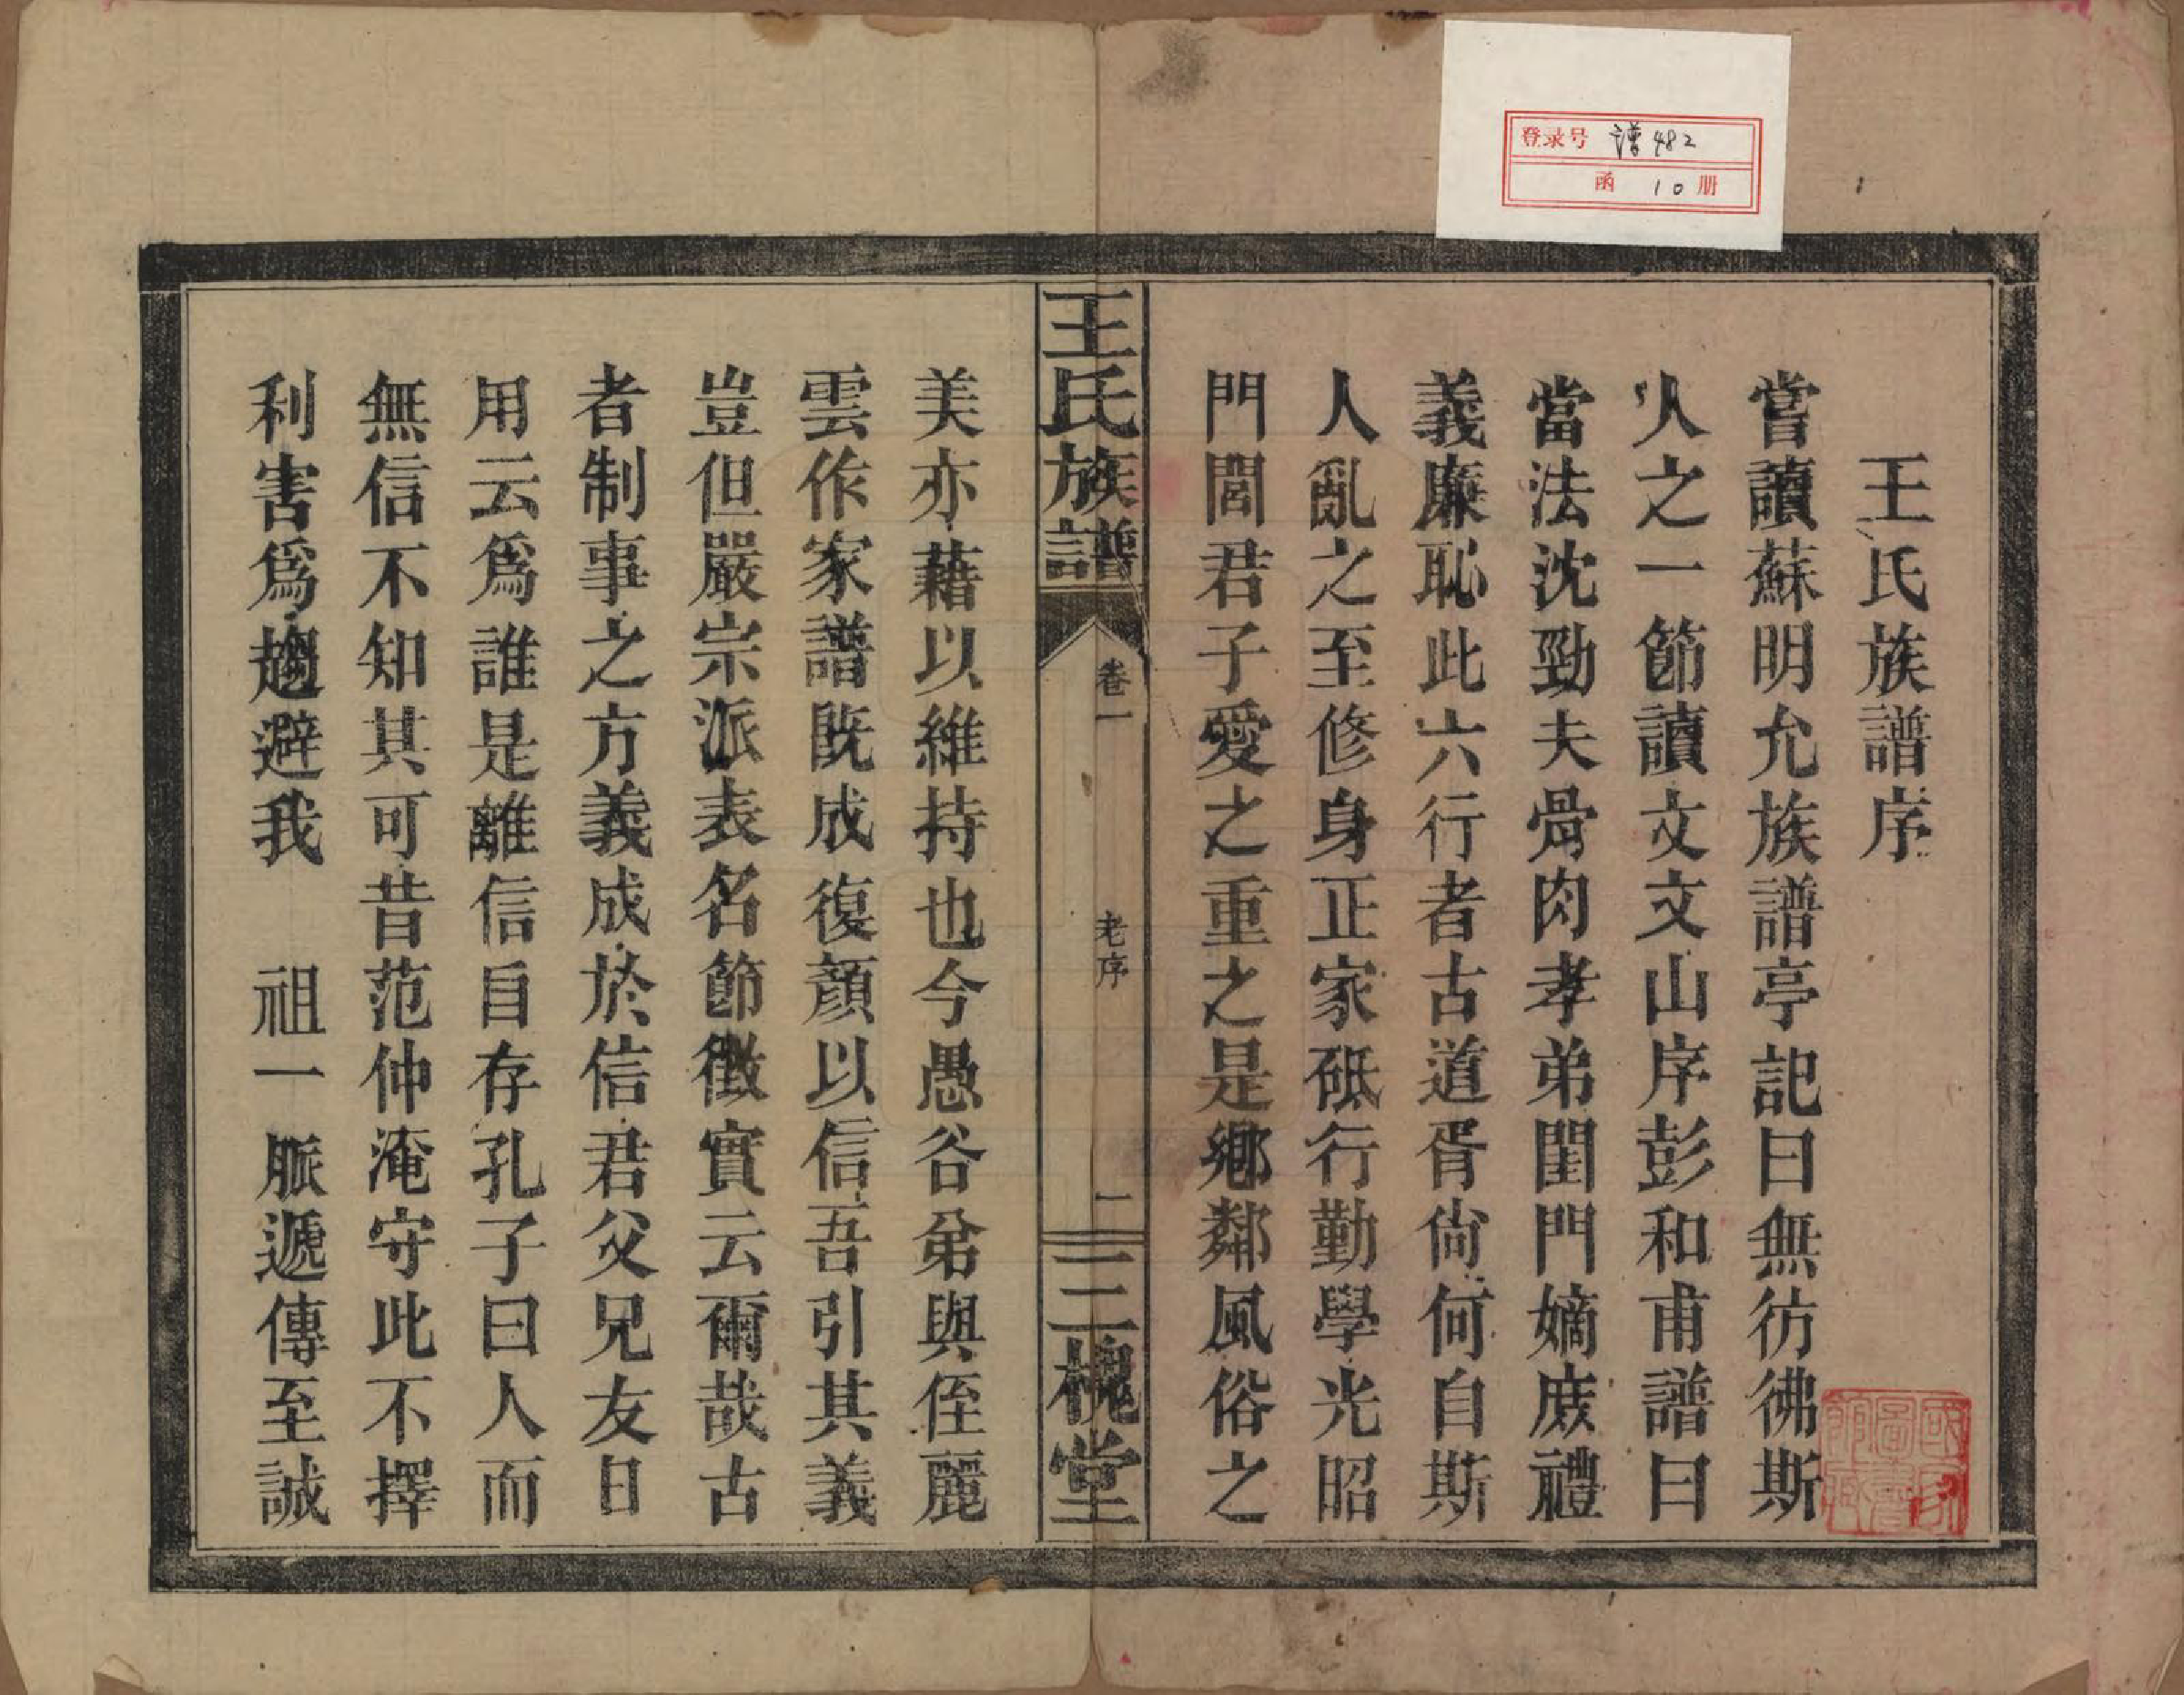 登录号 谱482
函 10 册
王氏族譜序
嘗讀蘇明允族譜亭記曰無彷彿斯
人之一節讀文文山序彭和甫譜曰
當法沈勁夫骨肉孝弟閨門嫡庻禮
義廉恥此六行者古道胥尙何自斯
人亂之至修身正家砥行勤學光昭
門閭君子愛之重之是鄕鄰風俗之
王氏族譜
卷一
老序
一
三槐堂
美亦藉以維持也今愚谷弟與侄麗
雲作家譜既成復顏以信吾引其義
豈但嚴宗派表名節徵實云爾哉古
者制事之方義成於信君父兄友日
用云爲誰是離信自存孔子曰人而
無信不知其可昔范仲淹守此不擇
利害爲趨避我 祖一脈遞傳至誠
國家圖書館藏